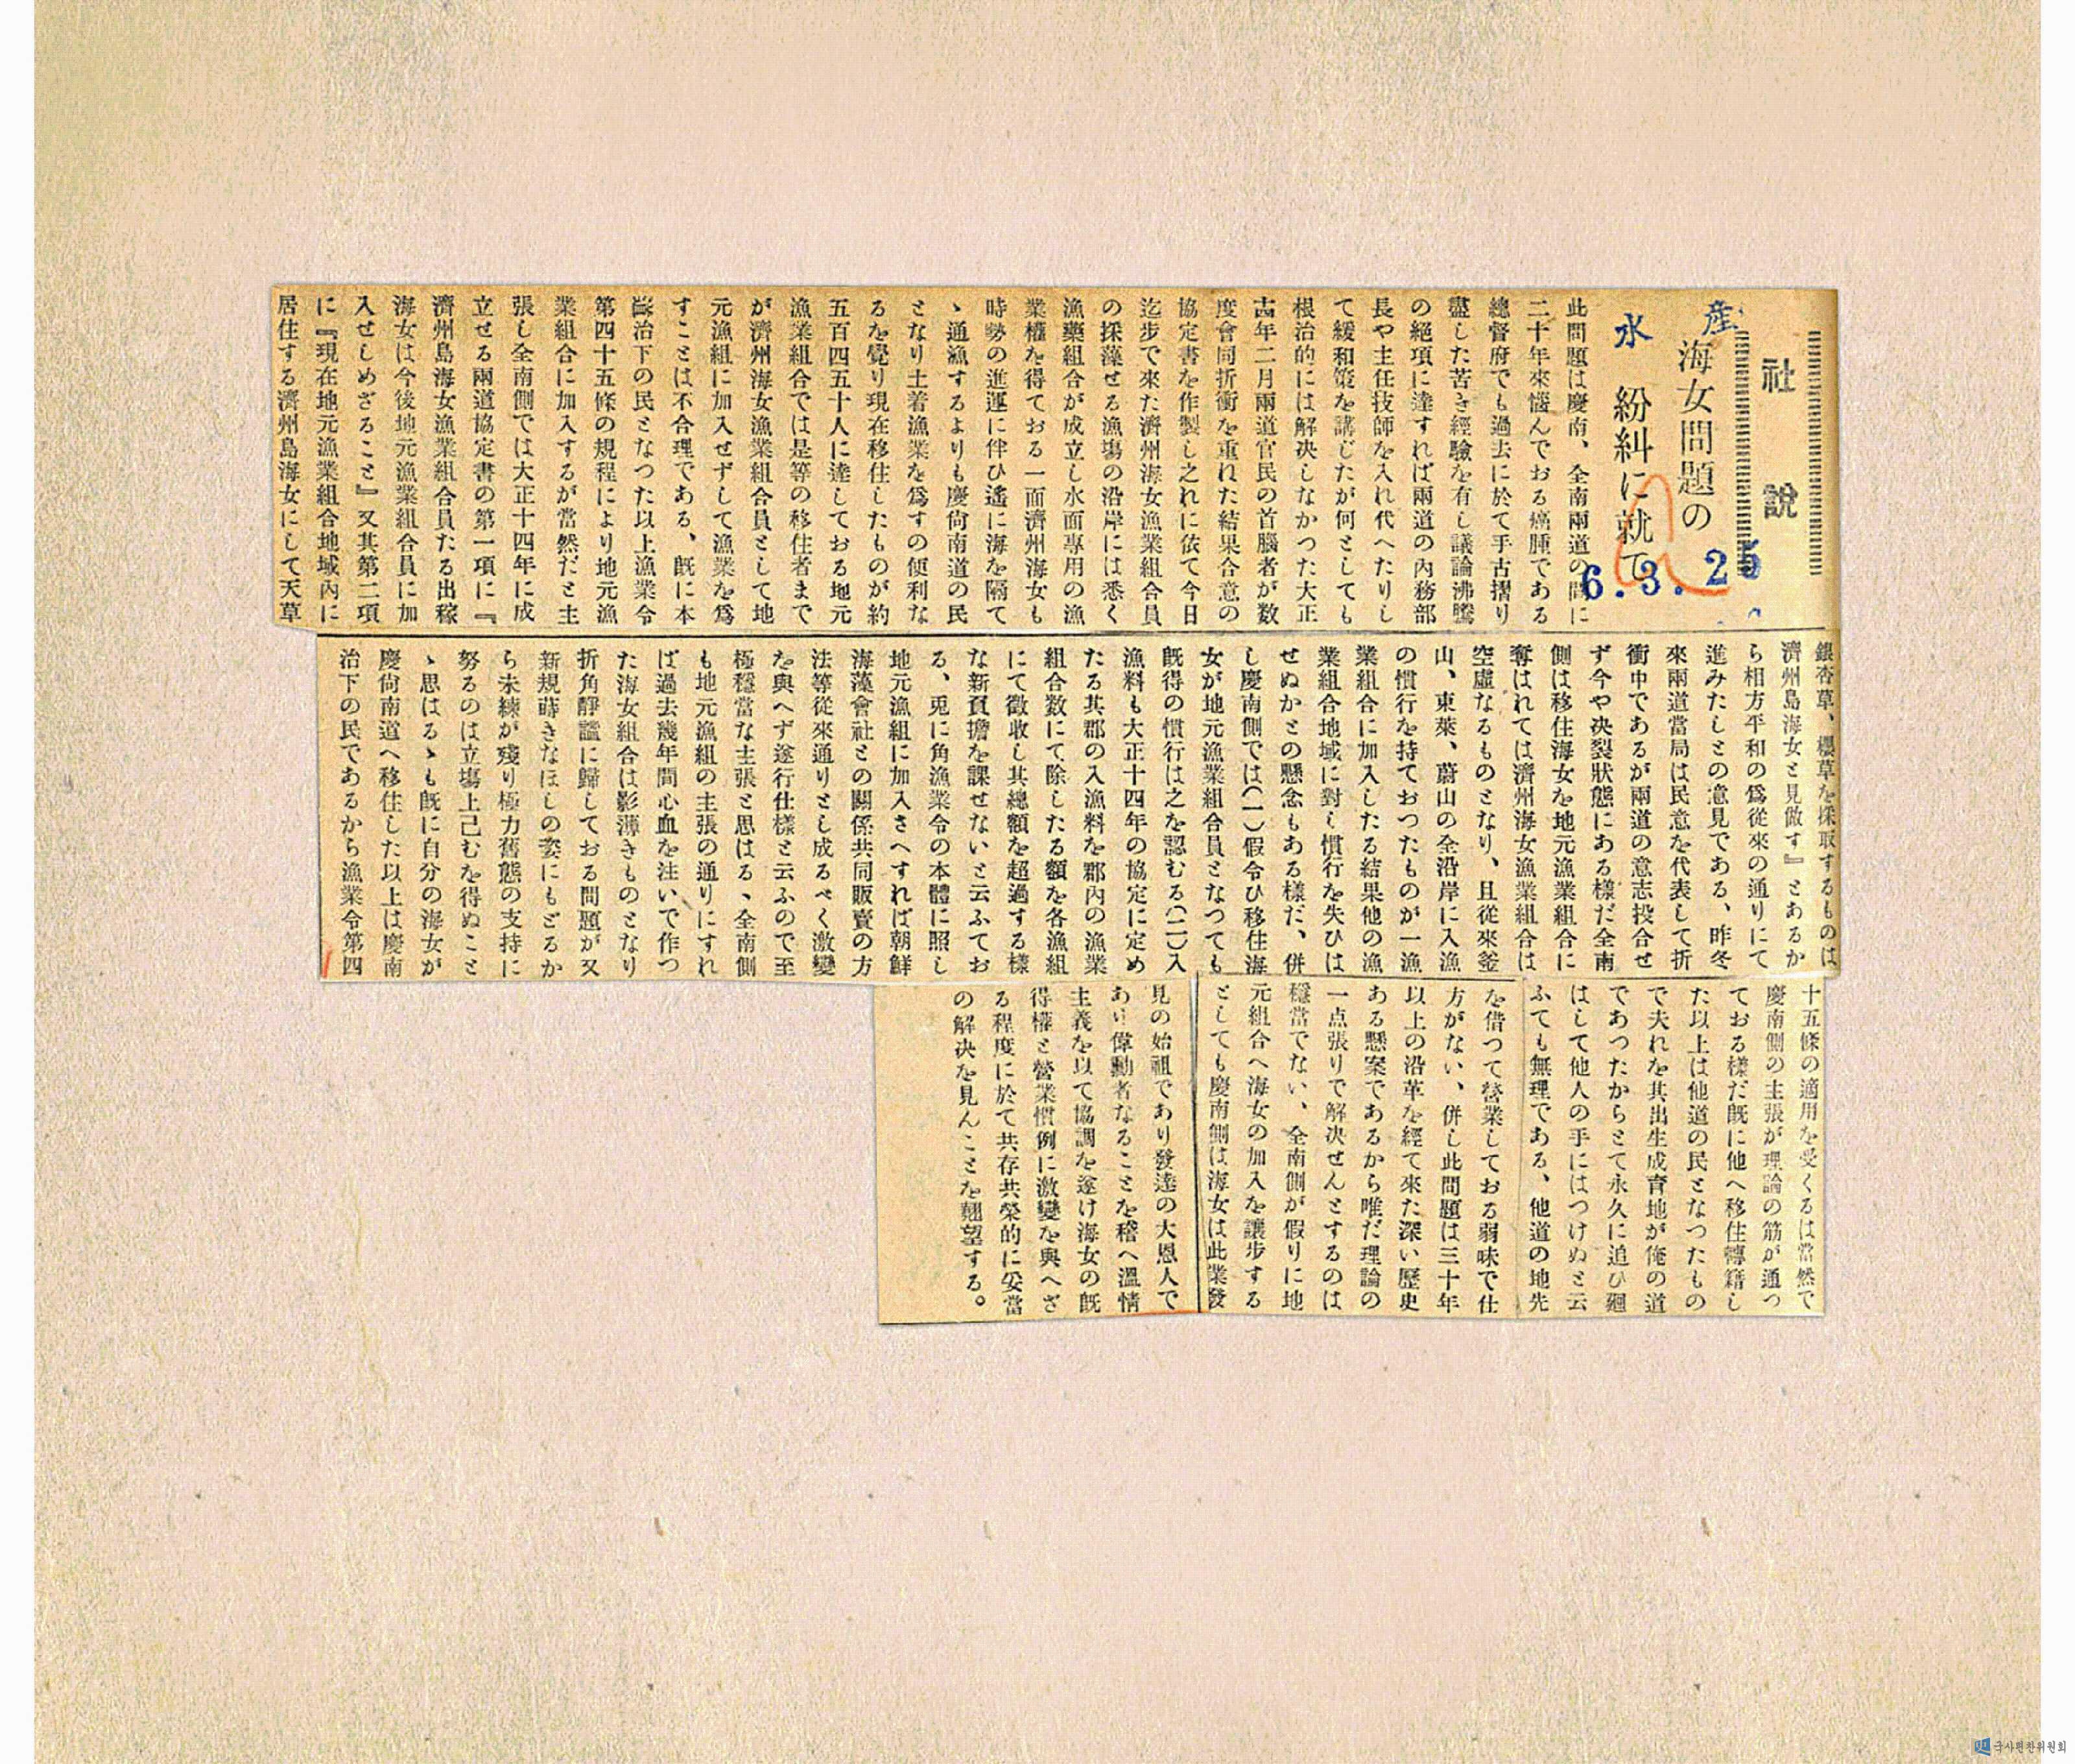 社説
海女問題の
紛糾に就て
水産
6.3.25
此問題は慶南、全南兩道の間に
二十年來惱んでおる癌腫である
總督府でも過去に於て手古摺り
盡した苦き經驗を有し議論沸騰
の絕項に達すれば兩道の内務部
長や主任技師を入れ代へたりし
て緩和策を講じたが何としても
根治的には解決しなかつた大正
十四年二月兩道官民の首腦者が数
度會同折衝を重れた結果合意の
協定書を作製し之れに依て今日
迄步で來た濟州海女漁業組合員
の採藻せる漁塲の沿岸には悉く
漁業組合が成立し水面專用の漁
業權を得ておる一面濟州海女も
時勢の進運に伴ひ遙に海を隔て
ゝ通漁するよりも慶尙南道の民
となり土着漁業を爲すの便利な
るを覺り現在移住したものが約
五百四五十人に達しておる地元
漁業組合では是等の移住者まで
が濟州海女漁業組合員として地
元漁組に加入せずして漁業を爲
すことは不合理である、既に本
道治下の民となつた以上漁業令
第四十五條の規程により地元漁
業組合に加入するが當然だと主
張し全南側では大正十四年に成
立せる兩道協定書の第一項に『
濟州島海女漁業組合員たる出稼
海女は今後地元漁業組合員に加
入せしめざること』又其第二項
に『現在地元漁業組合地域内に
居住する濟州島海女にして天草
銀杏草、櫻草を採取するものは
濟州島海女と見做す』とあるか
ら相方平和の爲從來の通りにて
進みたしとの意見である、昨冬
來兩道當局は民意を代表して折
衝中であるが兩道の意志投合せ
ず今や决裂狀態にある樣だ全南
側は移住海女を地元漁業組合に
奪はれては濟州海女漁業組合は
空虛なるものとなり、且從來釜
山、東萊、蔚山の全沿岸に入漁
の慣行を持ておつたものが一漁
業組合に加入したる結果他の漁
業組合地域に對し慣行を失ひは
せぬかとの懸念もある樣だ、併
し慶南側では(一)假令ひ移住海
女が地元漁業組合員となつても
既得の慣行は之を認むる(二)入
漁料も大正十四年の協定に定め
たる其郡の入漁料を郡内の漁業
組合数にて除したる額を各漁組
にて徵收し其總額を超過する樣
な新負擔を課せないと云ふてお
る、兎に角漁業令の本體に照し
地元漁組に加入さへすれば朝鮮
海藻會社との關係共同販賣の方
法等從來通りとし成るべく激變
を與へず遂行仕樣と云ふので至
極穩當な主張と思はる、全南側
も地元漁組の主張の通りにすれ
ば過去幾年間心血を注いで作つ
た海女組合は影薄きものとなり
折角靜謐に歸しておる問題が又
新規蒔きなほしの姿にもどるか
ら未練が殘り極力舊態の支持に
努るのは立塲上己むを得ぬこと
ゝ思はるゝも既に自分の海女が
慶尙南道へ移住した以上は慶南
治下の民であるから漁業令第四
十五條の適用を受くるは當然で
慶南側の主張が理論の筋が通つ
ておる樣だ既に他へ移住轉籍し
た以上は他道の民となつたもの
で夫れを其出生成育地が俺の道
であつたからとて永久に追ひ廻
はして他人の手にはつけぬと云
ふても無理である、他道の地先
を借つて營業しておる弱味で仕
方がない、併し此問題は三十年
以上の沿革を經て來た深い歷史
ある懸案であるから唯だ理論の
一点張りで解決せんとするのは
穩當でない、全南側が假りに地
元組合へ海女の加入を讓步する
としても慶南側は海女は此業發
見の始祖であり發達の大恩人で
あり偉勳者なることを稽へ溫情
主義を以て協調を遂け海女の既
得權と營業慣例に激變を與へざ
る程度に於て共存共榮的に妥當
の解決を見んことを翹望する。
국사편찬위원회